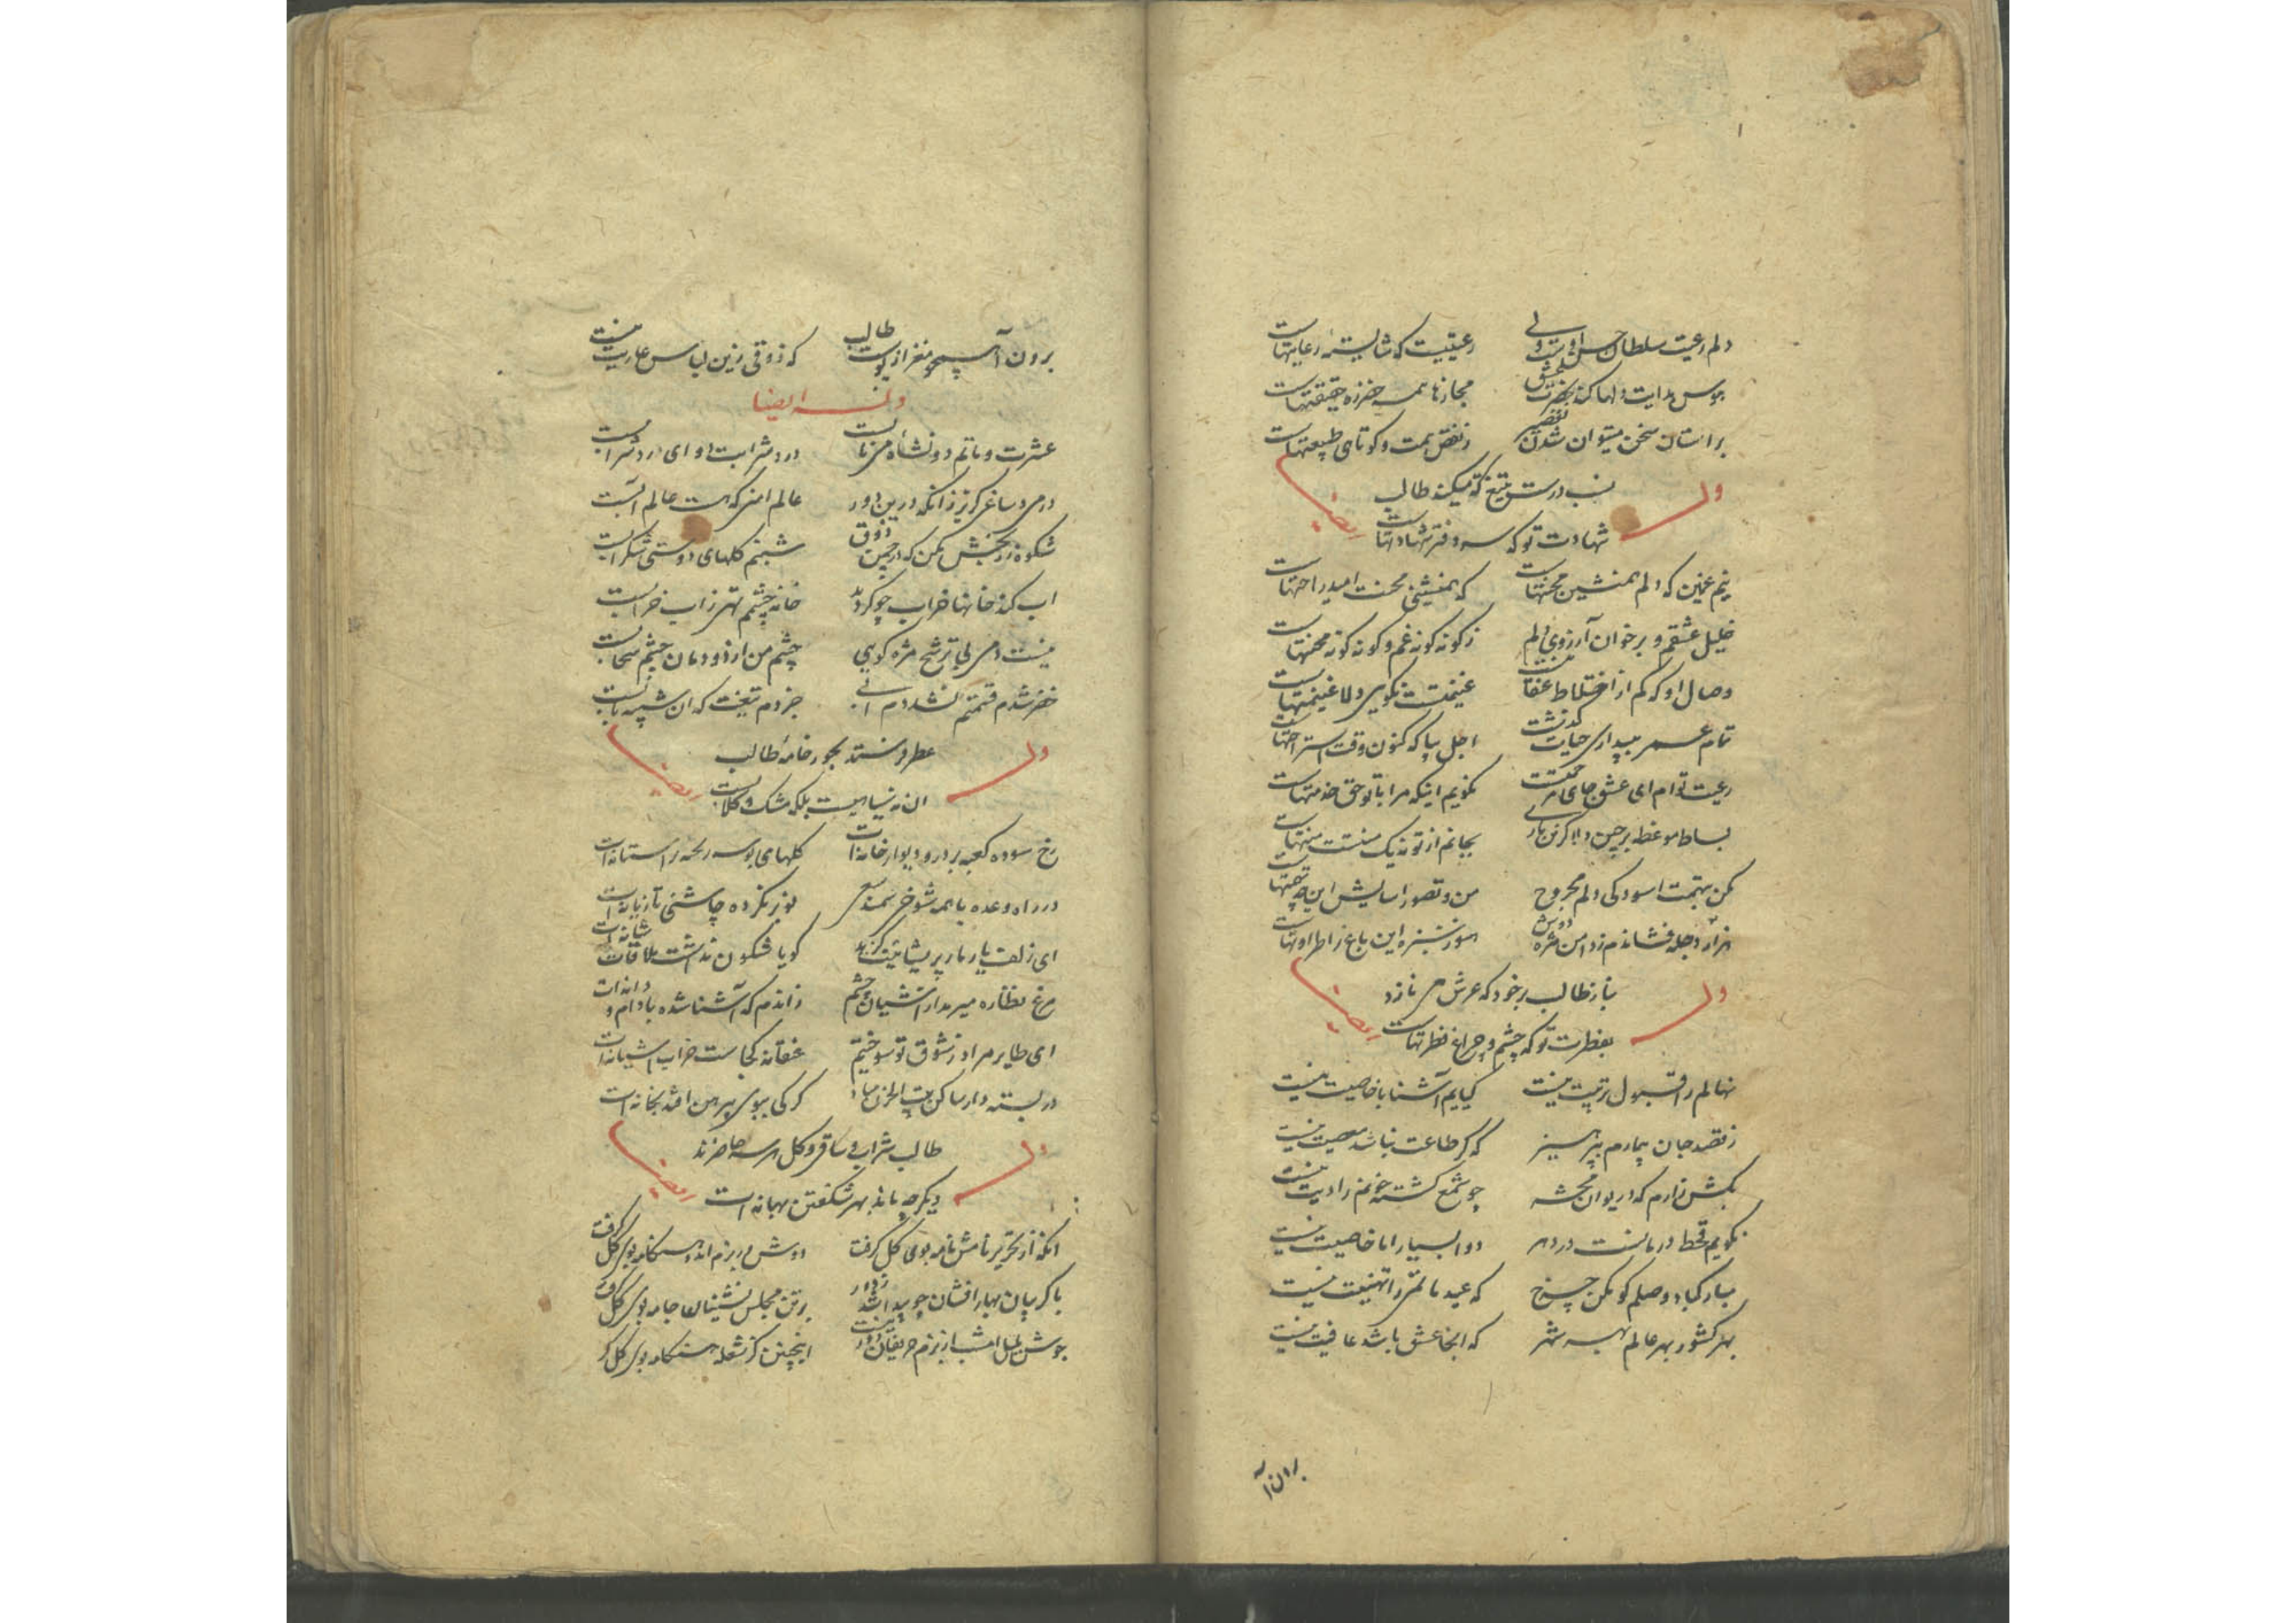 دلم رعیت سلطان حسن اوست ولی رعیتیست که شایسته رعایتهاست
مجازها همه حقیقتهاست
بر استان سخن میتوان شدن ز نقص همت و کوتاهی طبیعتهاست
وله ایضا
طالب
شهادت تو که سر دفتر شهادتهاست
نیم غمین که دلم همنشین محنتهاست که همنشینی محنت امید راحتهاست
خلیل عشقم و بر خوان آرزوی دلم ز کونه کونه غم و کونه کونه محنتهاست
وصال او که کم از اختلاط عنقا نیست غنیمتست نکویی ولا غنیمتهاست
تمام عمر ببیداری حیات کذشت اجل بیا که کنون وقت استراحتهاست
رعیت توام ای عشق جای مرحمتست نکویم اینکه مرا با تو حق خدمتهاست
بساط موعظه برچین دلا کزین یاری بجانم از تو نه یک منت منتهاست
مکن بتهمت اسودکی دلم مجروح من و تصور اسایش این چه تهمتهاست
هزار دجله فشاندم ز دامن مژه دوش هنوز سبزه این باغ را طراوتهاست
وله ایضا
بناز طالب بر خود که عرش می نازد
بفطرت تو که چشم و چراغ فطرتهاست
نهالم را قبول تربیت نیست کیایم آشنا با خاصیت نیست
ز قصد جان بیمارم بپرهیز که کر طاعت نباشد معصیت نیست
بکش زارم که در دیوان محشر چو شمع کشته خونم را دیت نیست
نکویم قحط درمانست در دهر دوا بسیار اما خاصیت نیست
مبارکباد وصلم کو مکن چرخ که عید ماتمی را تهنیت نیست
بهر کشور بهر عالم بهر شهر که انجا عشق باشد عافیت نیست
برون آ
برون آ همچو مغز از پوست طالب که ذوقی زین لباس عاریت نیست
وله ایضا
عشرت و ماتم دو نشاه می نابست درد شرابست و ای درد شرابست
در می و ساغر کریز زانکه درین دور عالم امنی که هست عالم آبست
شکوه ز رنجش مکن که در چمن ذوق شبنم کلهای دوستی شکرابست
اب کند خانها خراب چو کردید خانه چشم تهی ز اب خرابست
نیست دمی بی ترشح مژه کویی چشم من از دودمان چشم سحابست
خضر شدم قسمتم نشد دم آبی جز دم تیغت که ان نابست
وله ایضا
عطر فروشند بجور خامه طالب
ان نه سیاهیست بلکه مشک و کلابست
رخ سوده کعبه بر در و دیوار خانه ات کلهای بوسه ریخته بر استانه ات
در راه وعده با همه شوخی سمند سعی لوزینه کرده چاشنی تازیانه ات
ای زلف یار مار پریشانیت کزید کویا شکون نداشت ملاقات شانه ات
مرغ نظاره میرمد از اشیان چشم زاندم که آشنا شده با دام و دانه ات
ای طایر مراد ز شوق تو سوختم عنقا نه کجاست خراب اشیانه ات
در بسته دار ساکن بیت الحزن مباد کز کی ببوی پیرهن افتد بخانه ات
وله ایضا
طالب شراب و ساقی و کل هر سه حاضرند
دیکر چه ماند بهر شکفتن بهانه ات
انکه از تحریر نامش نامه بوی کل کرفت دوش در بزم امد و هنکامه بوی کل کرفت
با کریبان بهار افشان چو پیدا شد ز دور بر تن مجلس نشینان جامه بوی کل کرفت
جوش بلبل امشب از بزم حریفان دور نیست اینچنین کز شعله هنکامه بوی کل کرفت